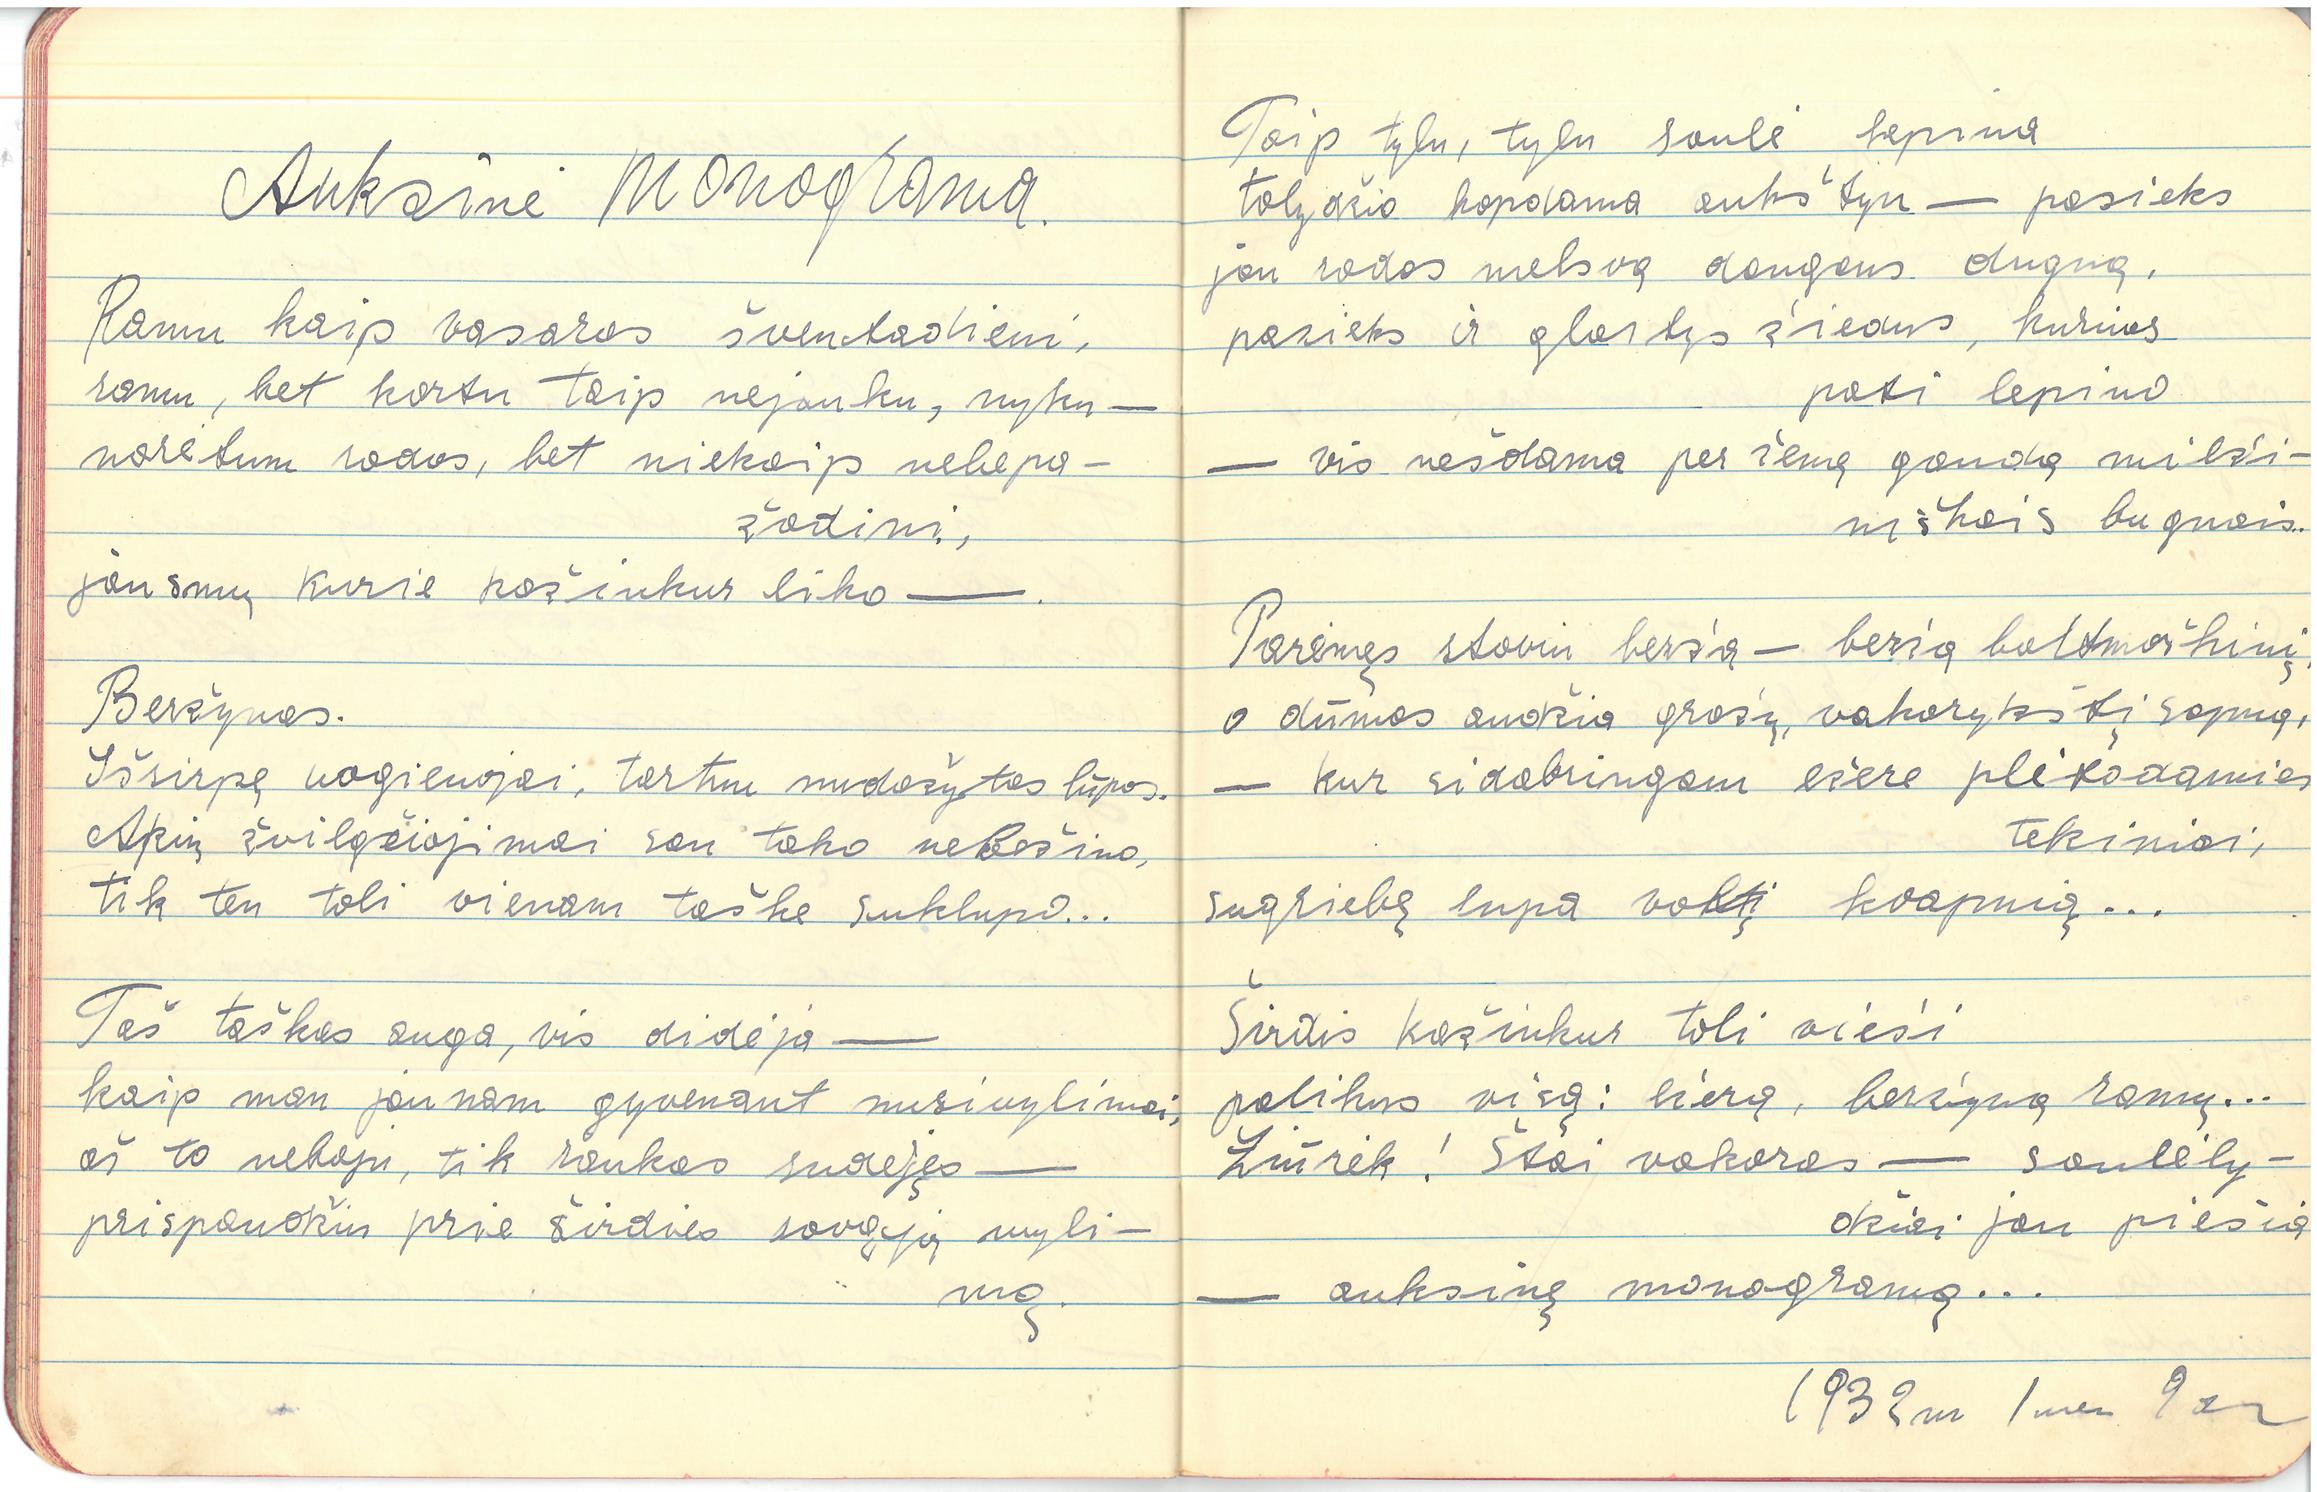 Auksinė Monograma.
Ramu kaip vasaros šventadienį,
ramu, bet kartu taip nejauku, nyku —
norėtum rodos, bet niekaip nebepa-
žadini,
jausmų kurie kažinkur liko —.
Beržynas.
Išsirpę uogienojai, tartum nudažytos lūpos.
Akių žvilgčiojimai san tako nebašino,
tik ten toli vienam taške suklupo...
Taš taškas auga, vis didėja —
kaip man jaunam gyvenant nusivylimai,
aš to nebaju, tik rankas sudėjęs —
prispaudžiu prie širdies savąją myli-
mą.
Taip tylu, tylu saulė kepina
tolydžio kopdama aukštyn — pasieks
jau rodos melsvą dangaus dugną,
pasieks ir glostys žiedus, kuriuos
pati lepino
— vis nešdama per žemę gandą milži-
niškais bugnais..
Parėmęs stoviu beržą — beržą baltmarškinį,
o dūmos audžia grožų, vakarykštį sapną,
— kur sidabringam ežere pleškodamies
tekiniai,
sugriebę supa valtį kvapnią...
Širdis kažinkur toli vieši
palikus visą: ežerą, beržyną ramų...
Žiūrėk! Štai vakaras — saulėly-
džiai jau piešia
— auksinę monogramą...
1932 m 1 mėn 9 d